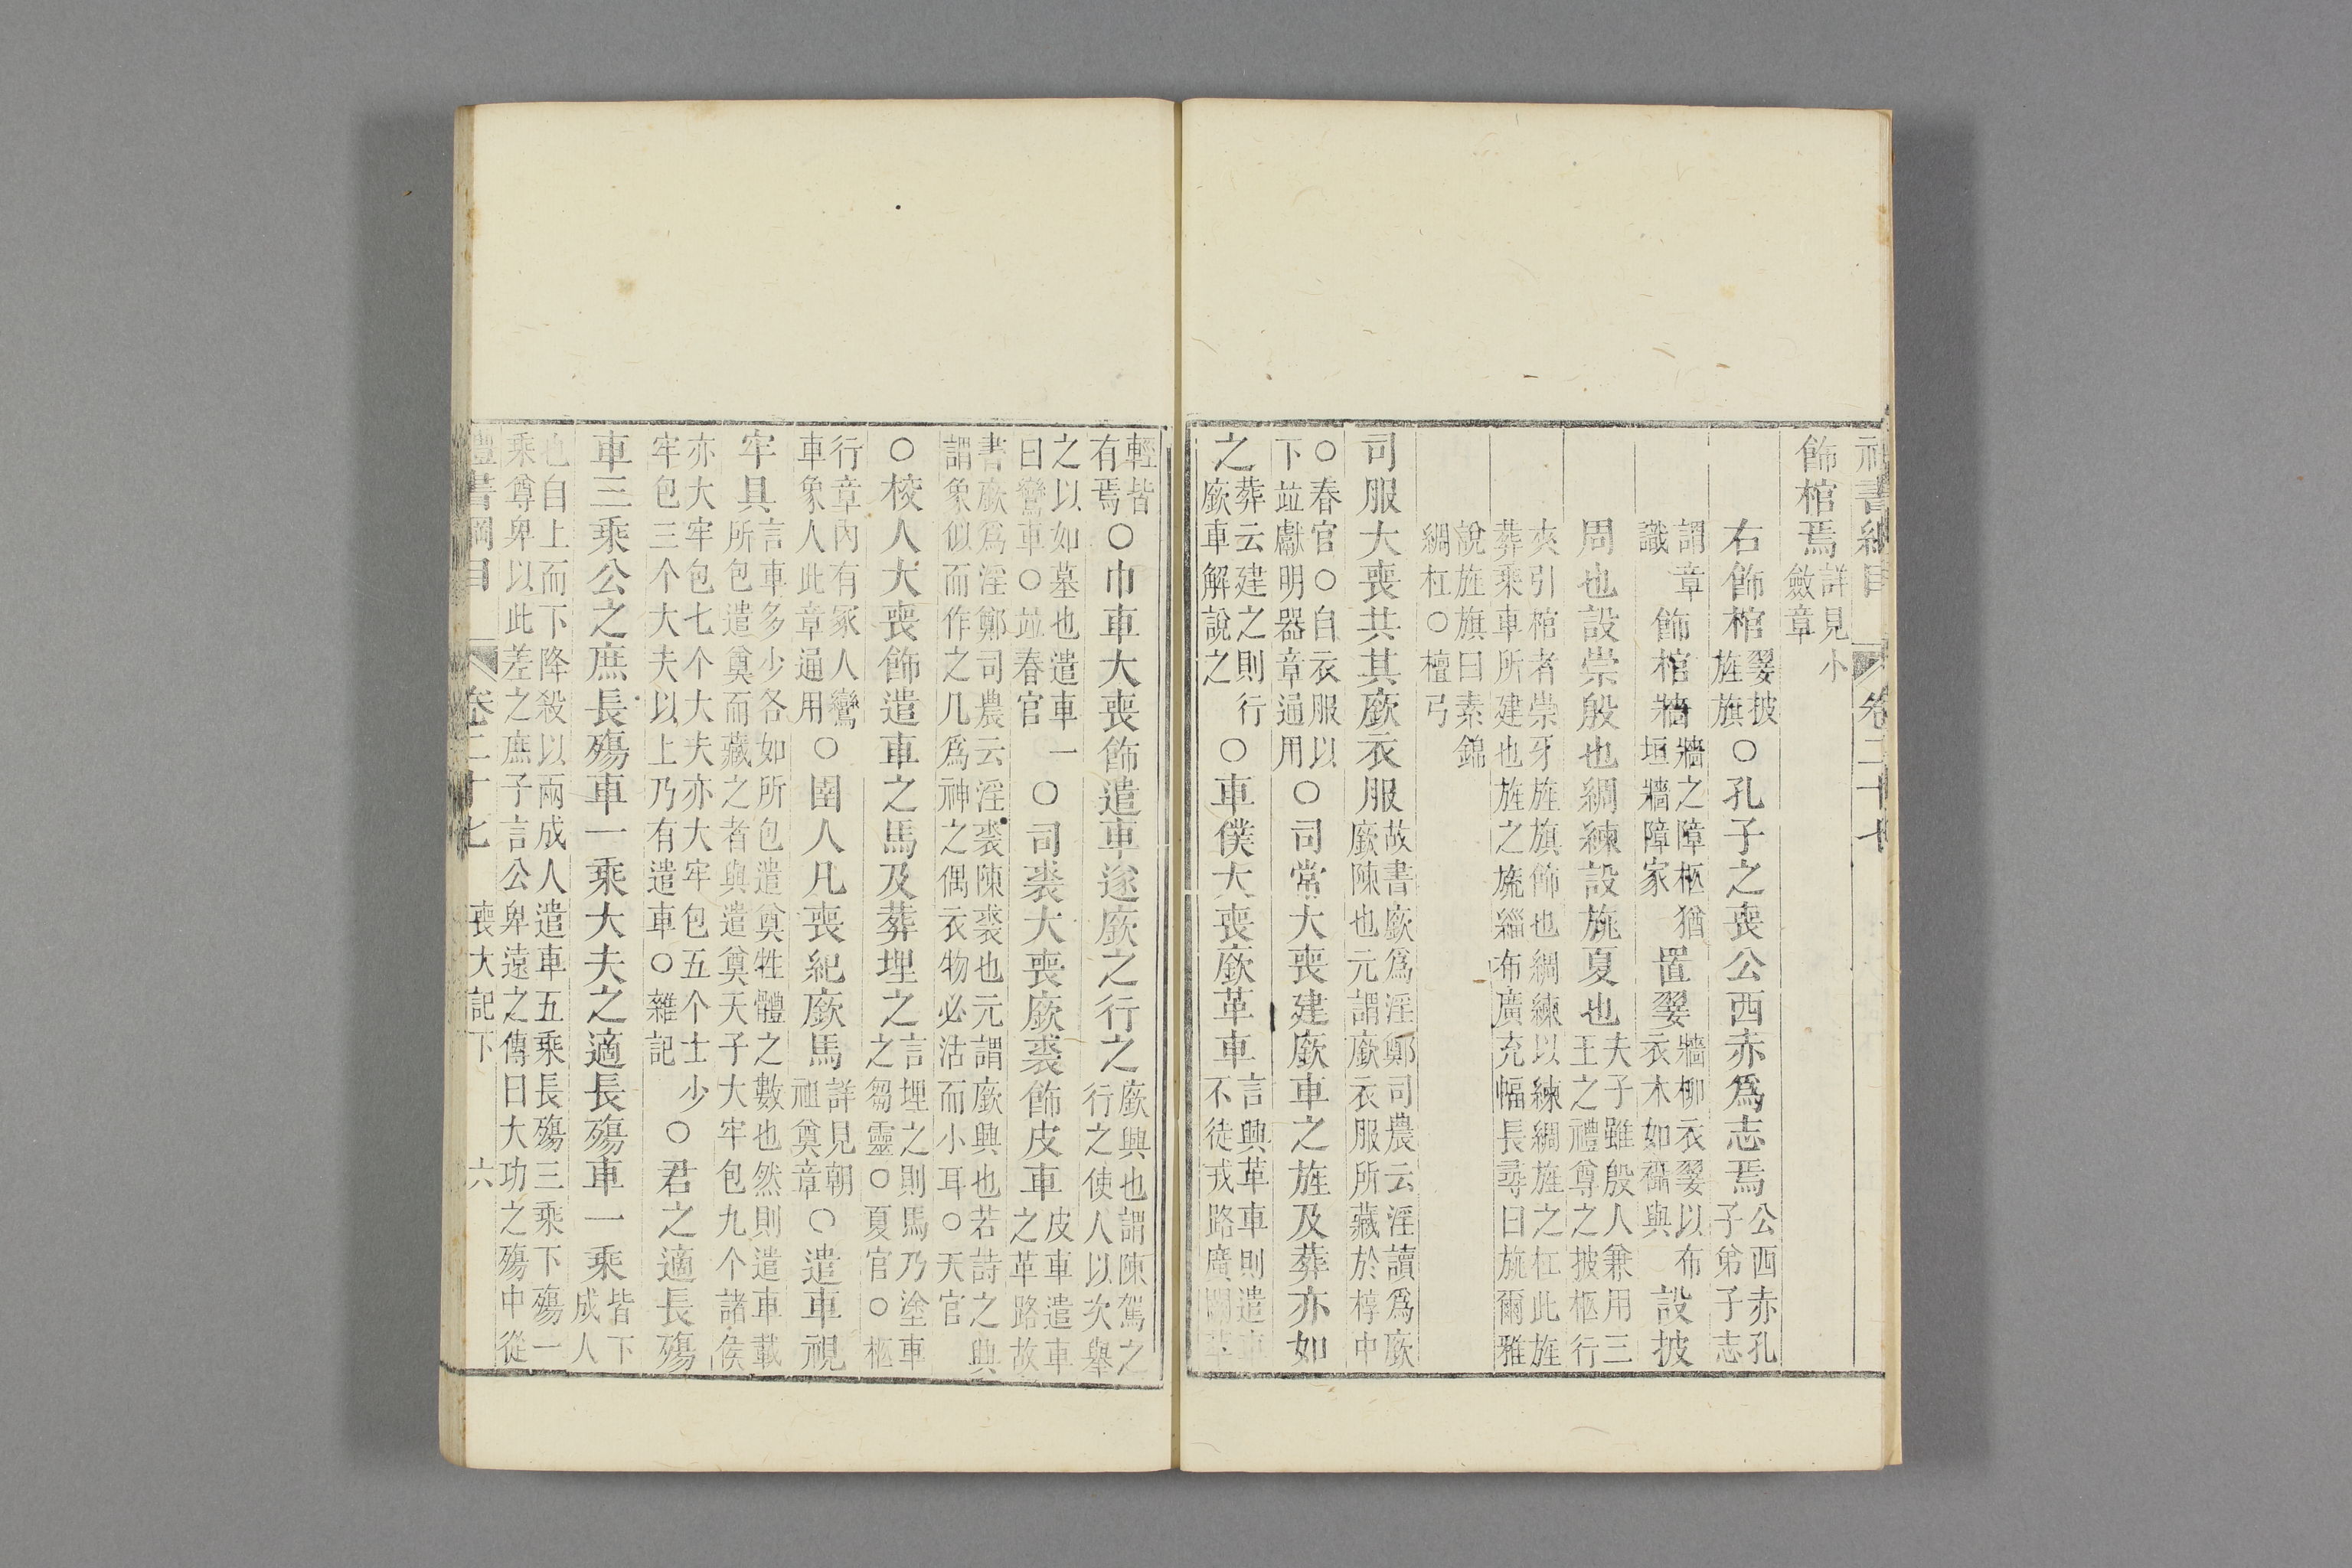 禮書綱目 卷二十七
飾棺焉詳見小
斂章
右飾棺翣披
旌旗○孔子之喪公西赤爲志焉公西赤孔
子弟子志
謂章
識飾棺牆牆之障柩猶
垣牆障家置翣牆柳衣翣以布
衣木如襵與設披
周也設崇殷也綢練設旐夏也夫子雖殷人兼用三
王之禮尊之披柩行
夾引棺者崇牙旌旗飾也綢練以練綢旌之杠此旌
葬乘車所建也旌之旒緇布廣充幅長尋曰旐爾雅
說旌旗曰素錦
綢杠○檀弓
司服大喪共其廞衣服故書廞爲淫鄭司農云淫讀爲廞
廞陳也元謂廞衣服所藏於椁中
○春官○自衣服以
下竝獻明器章通用○司常大喪建廞車之旌及葬亦如
之葬云建之則行
廞車解說之○車僕大喪廞革車言興革車則遣車
不徒戎路廣闕苹
輕皆
有焉○巾車大喪飾遣車遂廞之行之廞興也謂陳駕之
行之使人以次舉
之以如墓也遣車一
曰鸞車○竝春官○司裘大喪廞裘飾皮車皮車遣車
之革路故
書廞爲淫鄭司農云淫裘陳裘也元謂廞興也若詩之興
謂象似而作之凡爲神之偶衣物必沽而小耳○天官
○校人大喪飾遣車之馬及葬埋之言埋之則馬乃塗車
之芻靈○夏官○柩
行章內有冢人鸞
車象人此章通用○圉人凡喪紀廞馬詳見朝
祖奠章○遣車視
牢具言車多少各如所包遣奠牲體之數也然則遣車載
所包遣奠而藏之者與遣奠天子大牢包九个諸侯
亦大牢包七个大夫亦大牢包五个士少
牢包三个大夫以上乃有遣車○雜記○君之適長殤
車三乘公之庶長殤車一乘大夫之適長殤車一乘皆下
成人
也自上而下降殺以兩成人遣車五乘長殤三乘下殤一
乘尊卑以此差之庶子言公卑遠之傳曰大功之殤中從
禮書綱目 卷二十七 喪大記下 六